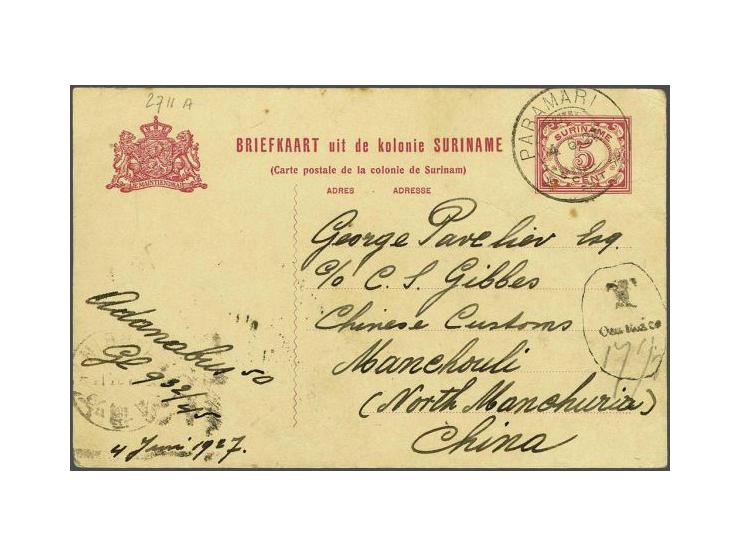 2711 A
JE MAINTIENDRAI
BRIEFKAART uit de kolonie SURINAME
(Carte postale de la colonie de Surinam)
ADRES - ADRESSE
PARAMARI
SURINAME
5
CENT
George Paveliev Esq.
c/o C. S. Gibbes
Chinese Customs
Manchouli
(North Manchuria)
China
T
50
4 Juni 1927.